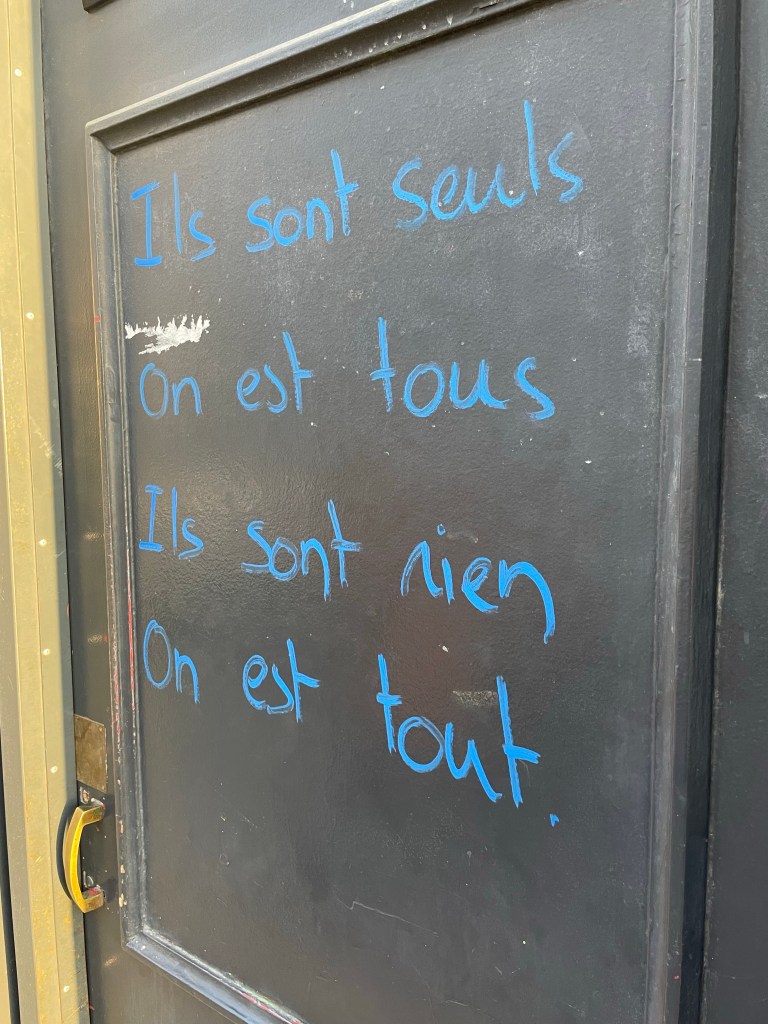 Ils sont seuls
On est tous
Ils sont rien
On est tout.